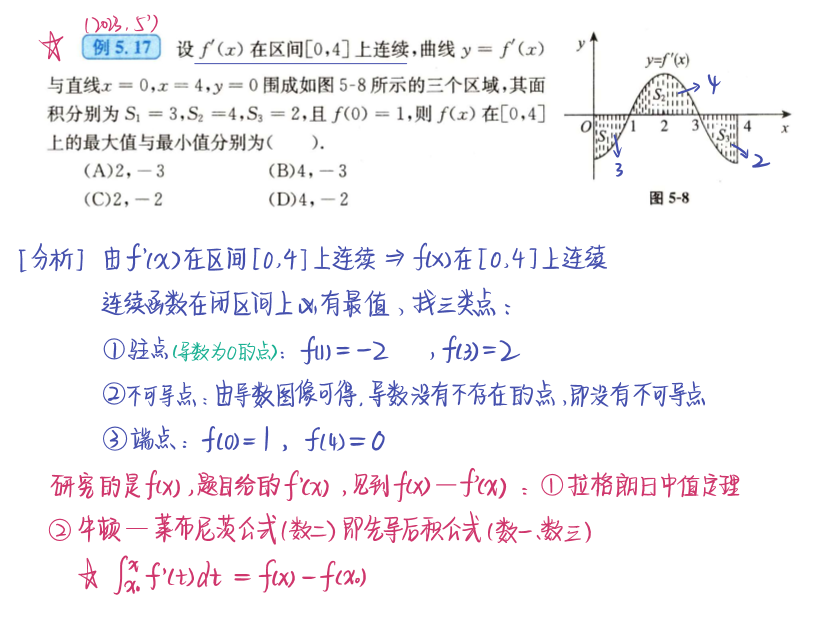 (2023.5')
☆ 例 5.17 设 f'(x) 在区间[0,4]上连续,曲线 y = f'(x)
与直线x = 0,x = 4,y = 0 围成如图 5-8 所示的三个区域,其面
积分别为 S₁ = 3,S₂ = 4,S₃ = 2,且 f(0) = 1,则 f(x) 在[0,4]
上的最大值与最小值分别为( ).
(A)2,-3 (B)4,-3
(C)2,-2 (D)4,-2
y
y=f'(x)
S₂ 4
O 1 2 3 4 x
S₁ S₃
3 2
图 5-8
[分析] 由f'(x)在区间[0,4]上连续 ⇒ f(x)在[0,4]上连续
连续函数在闭区间上必有最值,找三类点:
①驻点(导数为0的点): f(1)=-2 , f(3)=2
②不可导点:由导数图像可得,导数没有不存在的点,即没有不可导点
③端点: f(0)=1, f(4)=0
研究的是f(x),题目给的f'(x),见到f(x)—f'(x):①拉格朗日中值定理
②牛顿—莱布尼茨公式(数二)即先导后积公式(数一、数三)
☆ ∫ₓ₀ˣ f'(t)dt = f(x)-f(x₀)